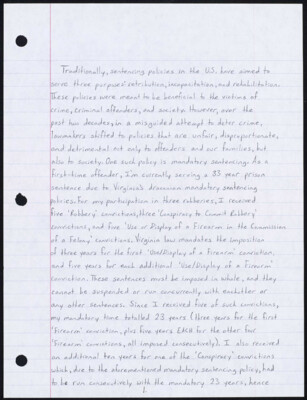 Traditionally, sentencing policies in the U.S. have aimed to
serve three purposes: retribution, incapacitation, and rehabilitation.
These policies were meant to be beneficial to the victims of
crime, criminal offenders, and society. However, over the
past two decades, in a misguided attempt to deter crime,
lawmakers shifted to policies that are unfair, disproportionate,
and detrimental not only to offenders and our families, but
also to society. One such policy is mandatory sentencing. As a
first-time offender, I'm currently serving a 33 year prison
sentence due to Virginia's draconian mandatory sentencing
policies. For my participation in three robberies, I received
five 'Robbery' convictions, three 'Conspiracy to Commit Robbery'
convictions, and five 'Use or Display of a Firearm in the Commission
of a Felony' convictions. Virginia law mandates the imposition
of three years for the first 'Use/Display of a Firearm' conviction,
and five years for each additional 'Use/Display of a Firearm'
conviction. These sentences must be imposed in whole, and they
cannot be suspended or run concurrently with each other or
any other sentences. Since I received five of such convictions,
my mandatory time totalled 23 years (three years for the first
'Firearm' conviction, plus five years EACH for the other four
'Firearm' convictions, all imposed consecutively). I also received
an additional ten years for one of the 'Conspiracy' convictions
which, due to the aforementioned mandatory sentencing policy, had
to be run consecutively with the mandatory 23 years, hence
1.